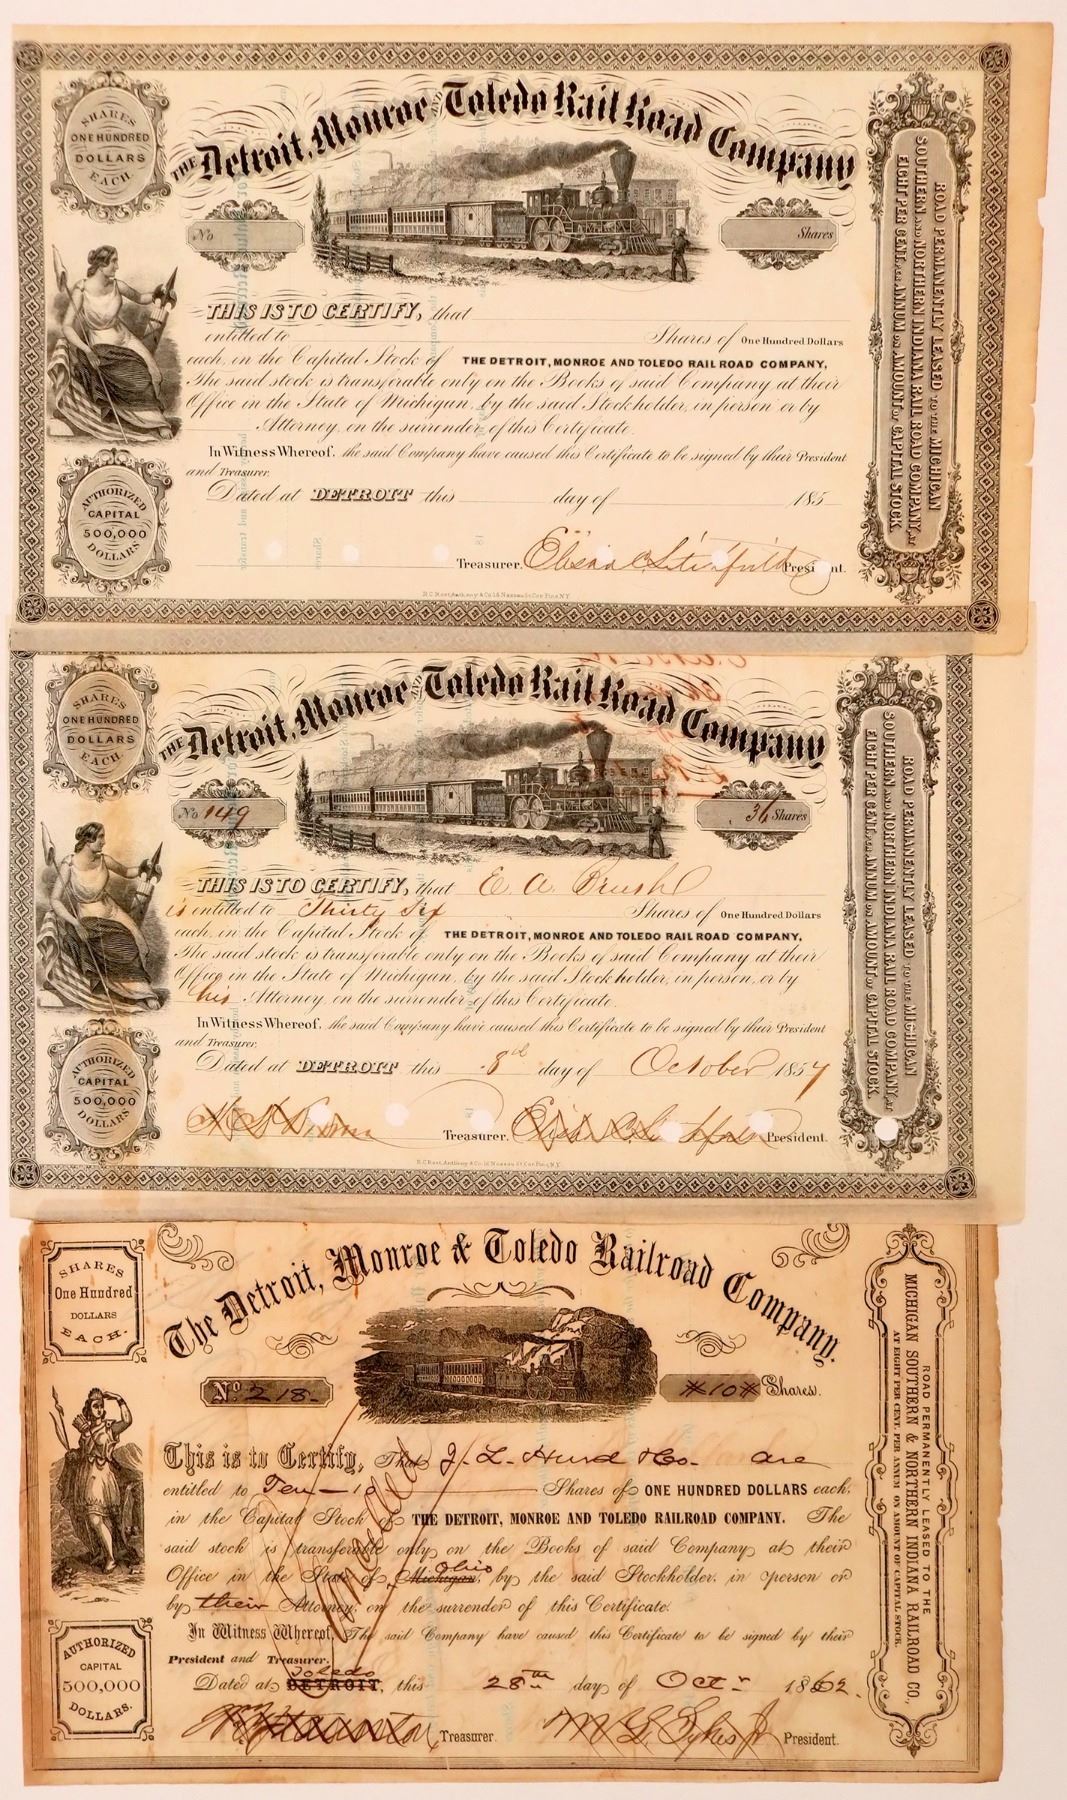 THE Detroit, Monroe AND Toledo Rail Road Company
SHARES
ONE HUNDRED
DOLLARS
EACH.
No
Shares
THIS IS TO CERTIFY, that
entitled to Shares of One Hundred Dollars
each, in the Capital Stock of THE DETROIT, MONROE AND TOLEDO RAIL ROAD COMPANY,
The said stock is transferable only on the Books of said Company at their
Office in the State of Michigan, by the said Stockholder, in person or by
Attorney, on the surrender of this Certificate.
In Witness Whereof, the said Company have caused this Certificate to be signed by their President
and Treasurer.
Dated at DETROIT this day of 185
Treasurer. President.
AUTHORIZED
CAPITAL
500,000
DOLLARS
R.C. Root, Anthony & Co. 16 Nassau St. Cor Pine N.Y.
ROAD PERMANENTLY LEASED TO THE MICHIGAN
SOUTHERN AND NORTHERN INDIANA RAIL ROAD COMPANY, AT
EIGHT PER CENT. PER ANNUM ON AMOUNT OF CAPITAL STOCK
THE Detroit, Monroe AND Toledo Rail Road Company
SHARES
ONE HUNDRED
DOLLARS
EACH.
No 149
36 Shares
THIS IS TO CERTIFY, that E A Brush
is entitled to Thirty Six Shares of One Hundred Dollars
each, in the Capital Stock of THE DETROIT, MONROE AND TOLEDO RAIL ROAD COMPANY,
The said stock is transferable only on the Books of said Company at their
Office in the State of Michigan, by the said Stockholder, in person, or by
his Attorney, on the surrender of this Certificate.
In Witness Whereof, the said Company have caused this Certificate to be signed by their President
and Treasurer.
Dated at DETROIT this 8th day of October 1857
Treasurer. President.
AUTHORIZED
CAPITAL
500,000
DOLLARS
R.C. Root, Anthony & Co. 16 Nassau St. Cor Pine, N.Y.
ROAD PERMANENTLY LEASED TO THE MICHIGAN
SOUTHERN AND NORTHERN INDIANA RAIL ROAD COMPANY, AT
EIGHT PER CENT. PER ANNUM ON AMOUNT OF CAPITAL STOCK
The Detroit, Monroe & Toledo Railroad Company.
SHARES
One Hundred
DOLLARS
EACH.
No 218
10 Shares.
This is to Certify, That J. L. Hurd & Co. are
entitled to Ten - 10 Shares of ONE HUNDRED DOLLARS each,
in the Capital Stock of THE DETROIT, MONROE AND TOLEDO RAILROAD COMPANY. The
said stock is transferable only on the Books of said Company at their
Office in the State of Michigan, Ohio by the said Stockholder, in person or
by their Attorney, on the surrender of this Certificate.
In Witness Whereof, The said Company have caused this Certificate to be signed by their
President and Treasurer.
Toledo
Dated at DETROIT, this 28th day of Octr 1862.
Treasurer. M L Sykes Jr President.
Cancelled
AUTHORIZED
CAPITAL
500,000
DOLLARS.
ROAD PERMANENTLY LEASED TO THE
MICHIGAN SOUTHERN & NORTHERN INDIANA RAILROAD CO.,
AT EIGHT PER CENT. PER ANNUM ON AMOUNT OF CAPITAL STOCK.